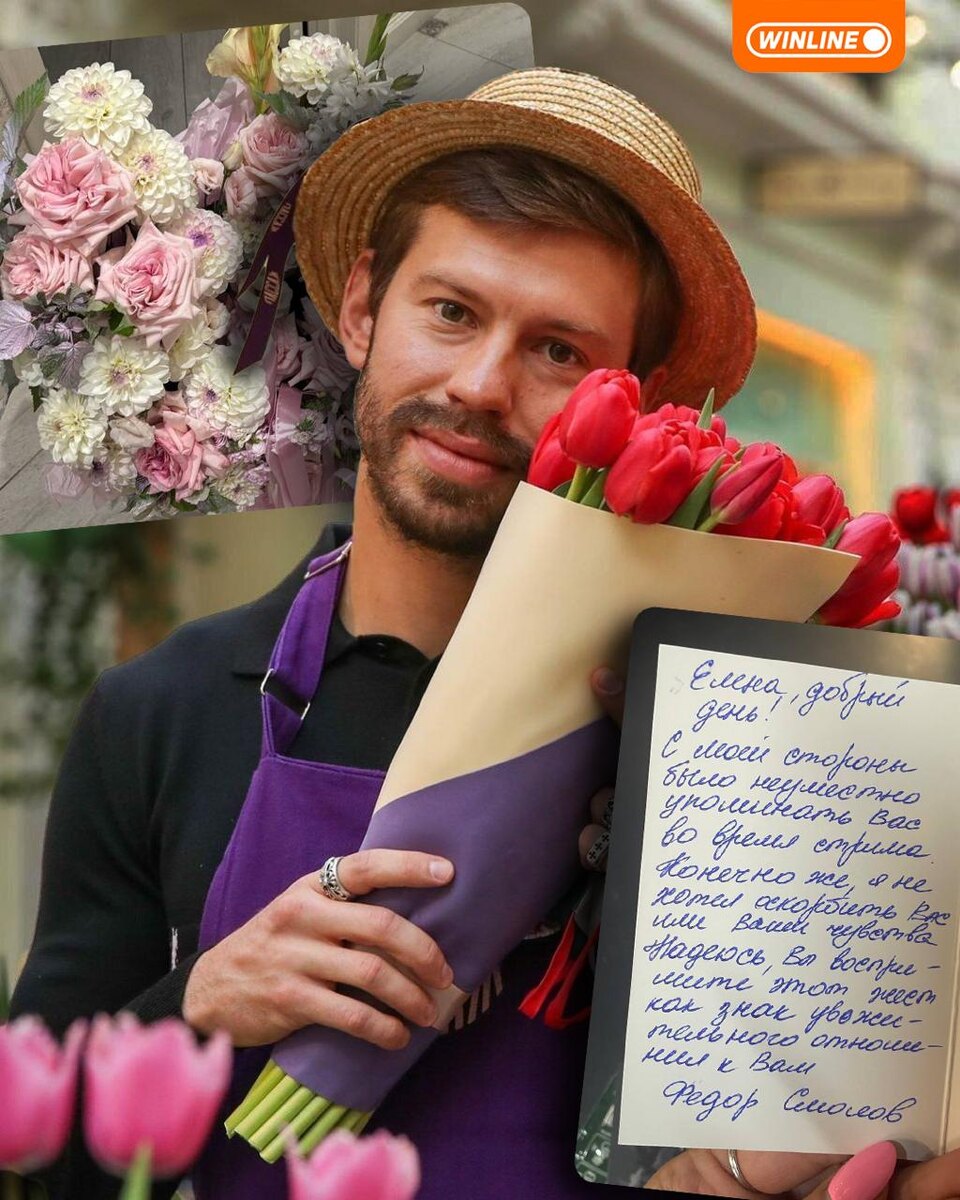 WINLINE
Елена, добрый
день!
С моей стороны
было неуместно
упоминать Вас
во время стрима.
Конечно же, я не
хотел оскорбить Вас
или Ваши чувства
Надеюсь, Вы воспри-
мите этот жест
как знак уважи-
тельного отноше-
ния к Вам
Федор Смолов